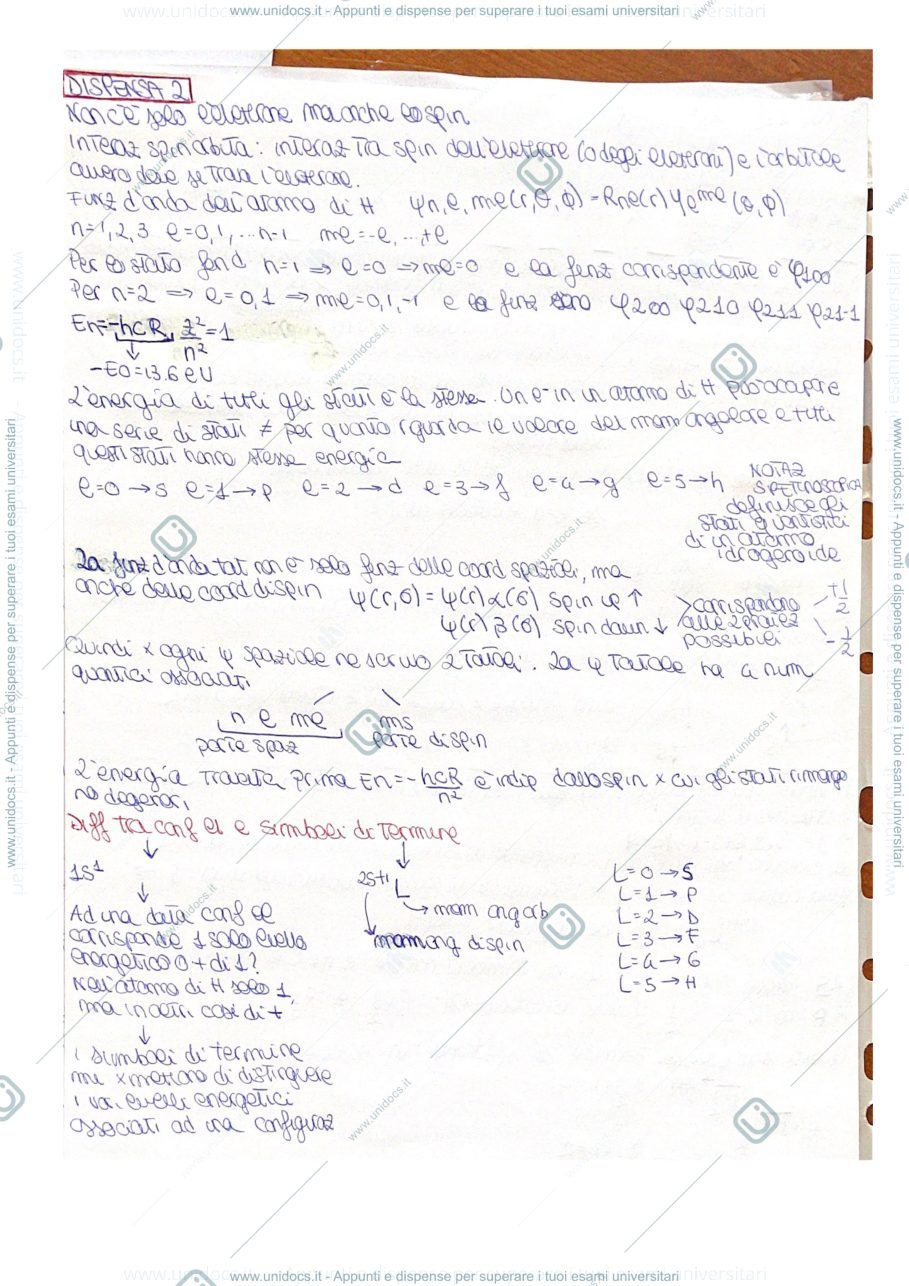 www.unidocs.it - Appunti e dispense per superare i tuoi esami universitari
DISPENSA 2
Non c'è solo l'elettrone ma anche lo spin
Interaz spin orbita: interaz tra spin dell'elettrone (o degli elettroni) e l'orbitale
ovvero dove si trova l'elettrone.
Funz d'onda dell'atomo di H ψn,l,ml(r,θ,ϕ) = Rnl(r) Yl^ml (θ,ϕ)
n=1,2,3 l=0,1,...n-1 ml=-l,...,+l
Per lo stato fond n=1 ⇒ l=0 ⇒ ml=0 e la funz corrispondente è φ100
Per n=2 ⇒ l=0,1 ⇒ ml=0,1,-1 e la funz sono φ200 φ210 φ211 φ21-1
En=-hcR, z²/n² = 1
↓
-E0=13.6 eV
L'energia di tutti gli stati è la stessa. Un e- in un atomo di H può occupare
una serie di stati ≠ per quanto riguarda il valore del mom angolare e tutti
questi stati hanno stessa energia
l=0→s l=1→p l=2→d l=3→f l=4→g l=5→h
NOTAZ
SPETTROSCOPICA
definisce gli
stati quantistici
di un atomo
idrogenoide
La funz d'onda tot non è solo funz delle coord spaziali, ma
anche delle coord di spin ψ(r,σ) = ψ(r)α(σ) spin up ↑
ψ(r)β(σ) spin down ↓
corrispondono
alle 2 proiez
possibili
+1/2
-1/2
Quindi x ogni ψ spaziale ne servono 2 totali. La ψ totale ha 4 num
quantici associati
n l ml ms
parte spaz parte di spin
L'energia trovata prima En=-hcR/n² è indip dallo spin x cui gli stati rimango
no degeneri
Diff tra conf el e simboli di termine
↓ ↓
1s¹
↓
Ad una data conf el
corrisponde 1 solo livello
energetico o + di 1?
Nell'atomo di H solo 1,
ma in altri casi di +
↓
i simboli di termine
mi x mettono di distinguere
i vari livelli energetici
associati ad una configuraz
2S+1 L
→ mom ang orb
mom ang di spin
L=0→S
L=1→P
L=2→D
L=3→F
L=4→G
L=5→H
www.unidocs.it - Appunti e dispense per superare i tuoi esami universitari